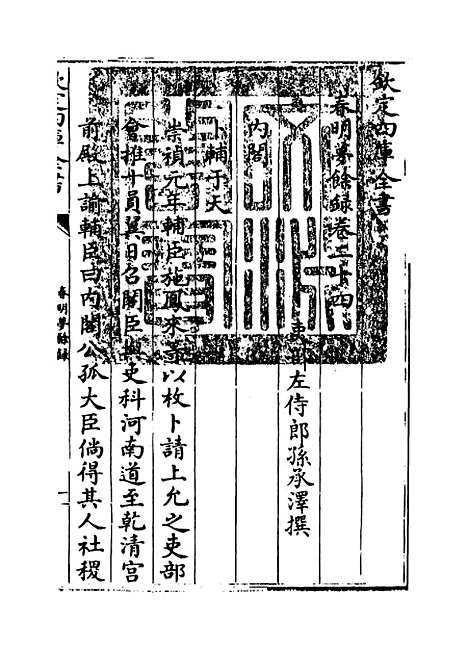 欽定四庫全書
春明夢餘録卷二十四
吏部左侍郎孫承澤撰
内閣
卜輔于天
崇禎元年輔臣施鳳來等以枚卜請上允之吏部
會推十員翼日召閣臣與吏科河南道至乾清宫
前殿上諭輔臣曰内閣公孤大臣倘得其人社稷
春明夢餘録
一